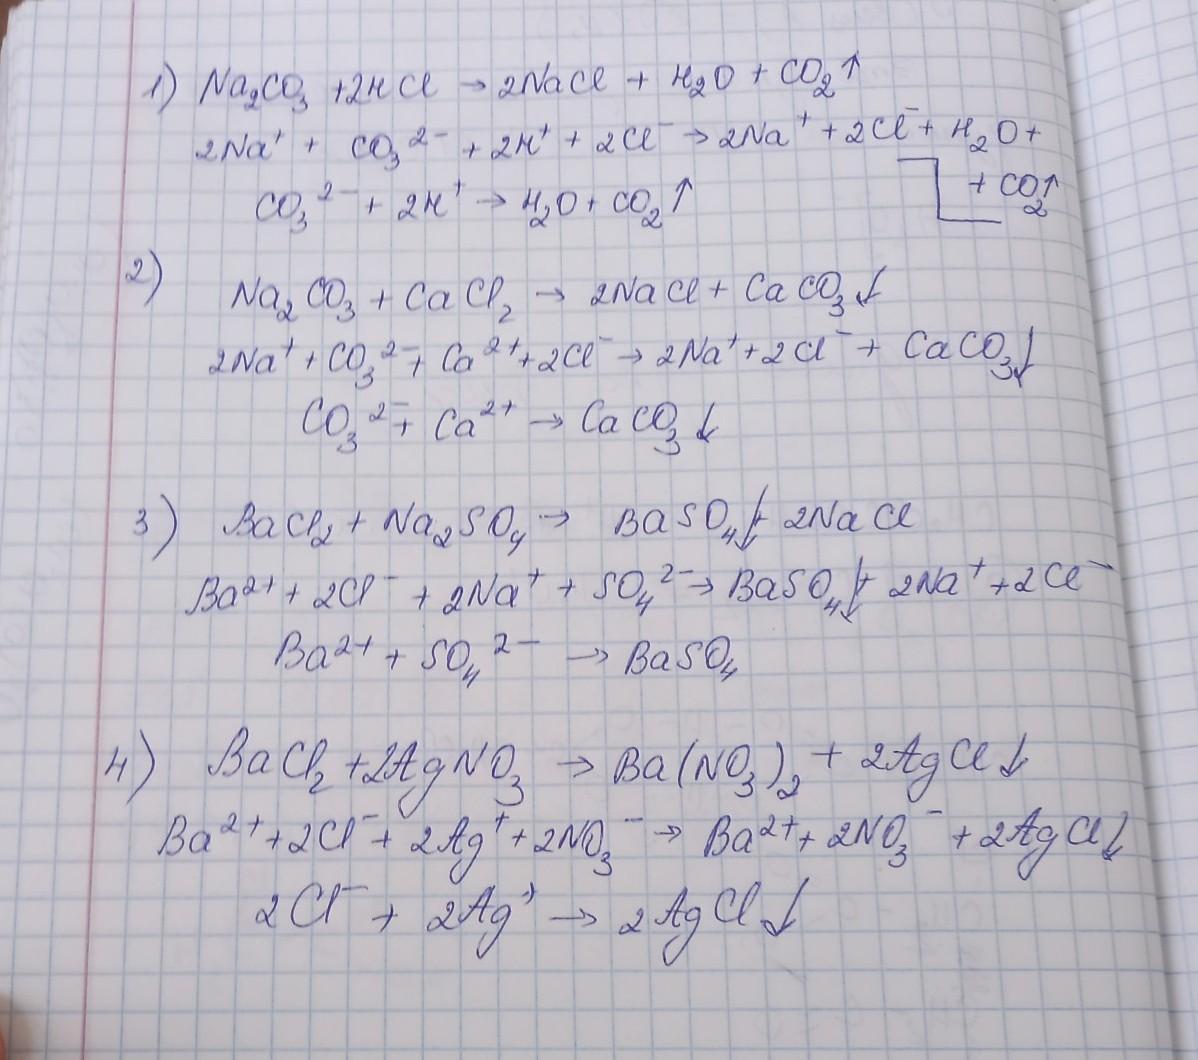 1) Na₂CO₃ +2HCl → 2NaCl + H₂O + CO₂↑
2Na⁺ + CO₃²⁻ + 2H⁺ + 2Cl⁻ → 2Na⁺ + 2Cl⁻ + H₂O +
+ CO₂↑
CO₃²⁻ + 2H⁺ → H₂O + CO₂↑
2)
Na₂CO₃ + CaCl₂ → 2NaCl + CaCO₃↓
2Na⁺ + CO₃²⁻ + Ca²⁺ + 2Cl⁻ → 2Na⁺ + 2Cl⁻ + CaCO₃↓
CO₃²⁻ + Ca²⁺ → CaCO₃↓
3) BaCl₂ + Na₂SO₄ → BaSO₄↓ + 2NaCl
Ba²⁺ + 2Cl⁻ + 2Na⁺ + SO₄²⁻ → BaSO₄↓ + 2Na⁺ + 2Cl⁻
Ba²⁺ + SO₄²⁻ → BaSO₄
4) BaCl₂ + 2AgNO₃ → Ba(NO₃)₂ + 2AgCl↓
Ba²⁺ + 2Cl⁻ + 2Ag⁺ + 2NO₃⁻ → Ba²⁺ + 2NO₃⁻ + 2AgCl↓
2Cl⁻ + 2Ag⁺ → 2AgCl↓